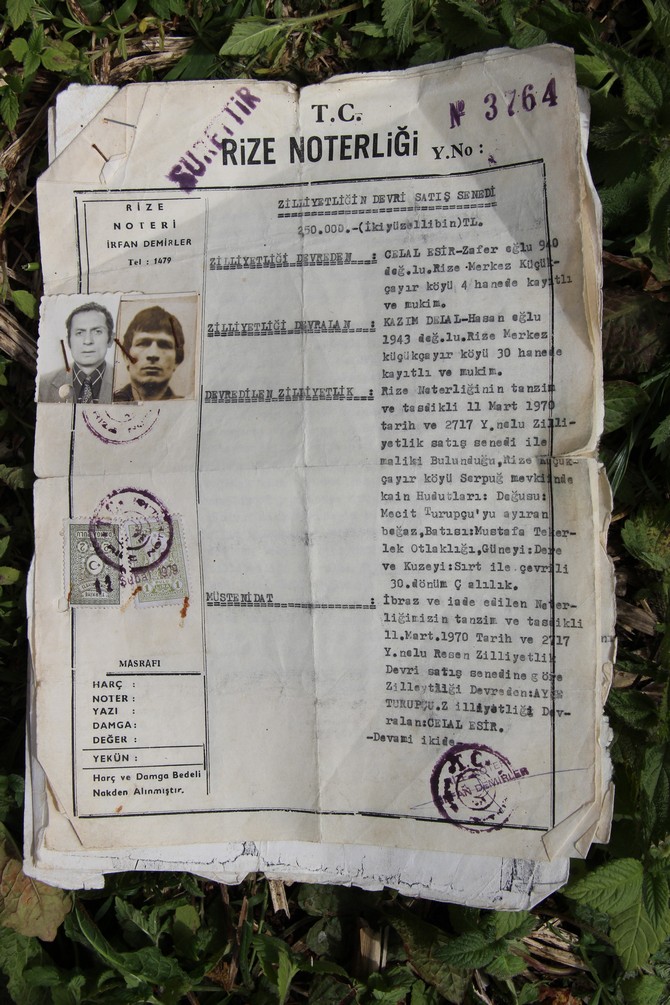 SURETTİR
T.C.
№ 3764
RİZE NOTERLİĞİ Y.No :
RİZE
NOTERİ
İRFAN DEMİRLER
Tel : 1479
ZİLLİYETLİĞİN DEVRİ SATIŞ SENEDİ
250.000.-(İkiyüzellibin)TL.
ZİLLİYETLİĞİ DEVREDEN : CELAL ESİR-Zafer oğlu 940
doğ.lu.Rize Merkez Küçük-
çayır köyü 4 hanede kayıtlı
ve mukim.
ZİLLİYETLİĞİ DEVRALAN : KAZIM DELAL-Hasan oğlu
1943 doğ.lu.Rize Merkez
küçükçayır köyü 30 hanede
kayıtlı ve mukim.
DEVREDİLEN ZİLLİYETLİK : Rize Noterliğinin tanzim
ve tasdikli 11 Mart 1970
tarih ve 2717 Y.nolu Zilli-
yetlik satış senedi ile
maliki Bulunduğu,Rize küçük-
çayır köyü Serpuğ mevkiinde
kain Hudutları: Doğusu:
Mecit Turupçu'yu ayıran
boğaz,Batısı:Mustafa Teker-
lek Otlaklığı,Güneyi:Dere
ve Kuzeyi:Sırt ile çevrili
30.dönüm Ç alılık.
MÜSTENİDAT : İbraz ve iade edilen Noter-
liğimizin tanzim ve tasdikli
11.Mart.1970 Tarih ve 2717
Y.nolu Resen Zilliyetlik
Devri satış senedine göre
Zilleytliği Devreden:AYŞE
TURUPÇU.Z illiyetliği Dev-
ralan:CELAL ESİR.
-Devamı ikide-
MASRAFI
HARÇ :
NOTER :
YAZI :
DAMGA:
DEĞER :
YEKÜN :
Harç ve Damga Bedeli
Nakden Alınmıştır.
T.C.